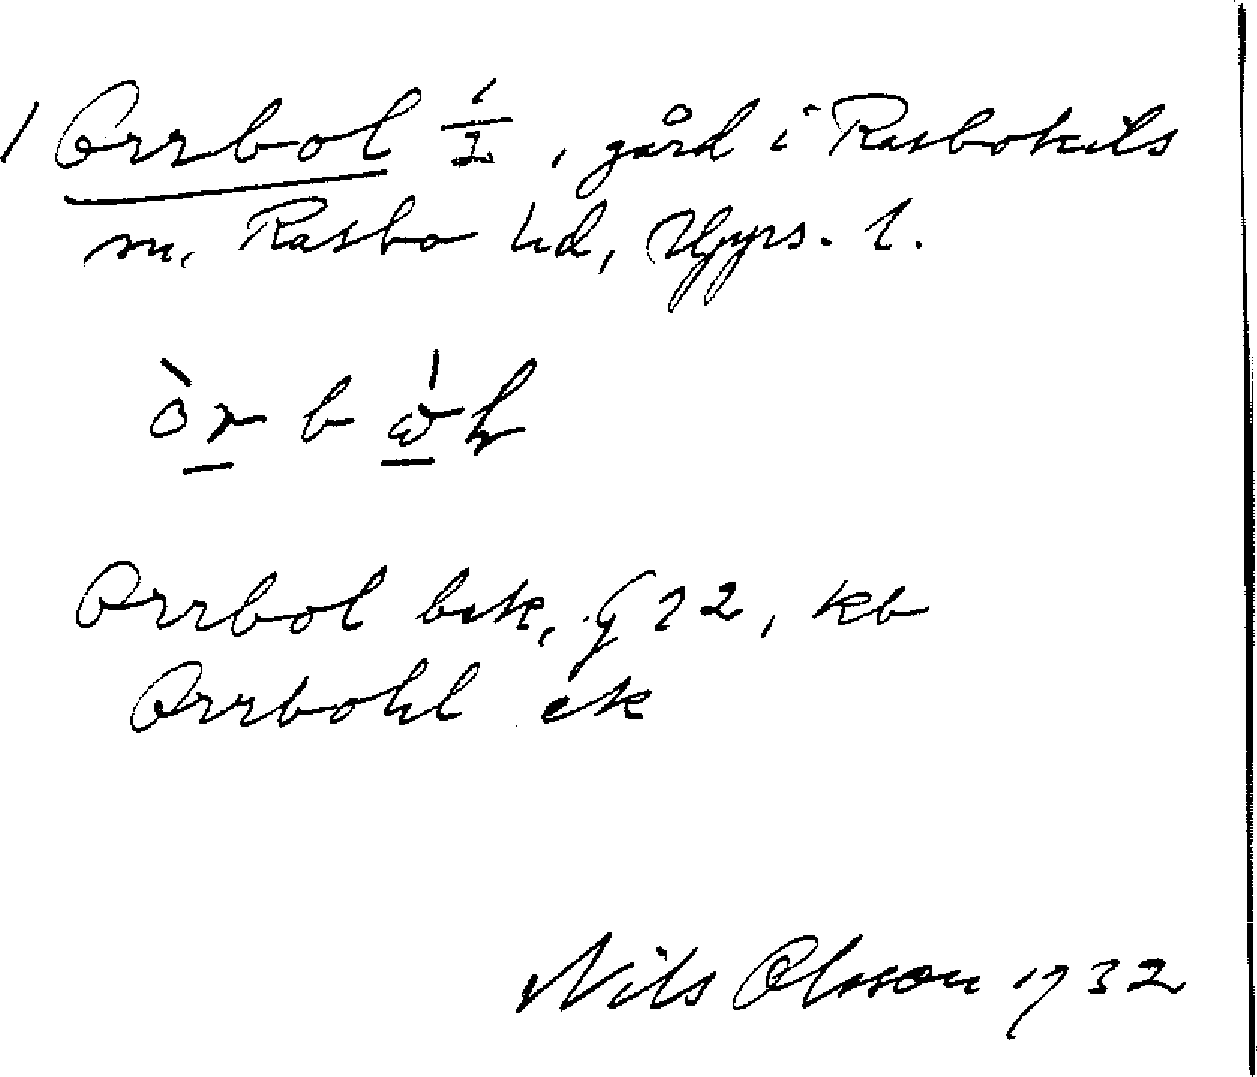 1 Orrbol 1/2, gård i Rasbokils
sn, Rasbo hd, Upps. l.
òr b ὼ
Orrbol bsk, G 22, kb
Orrbohl ek
Nils Olsson 1932